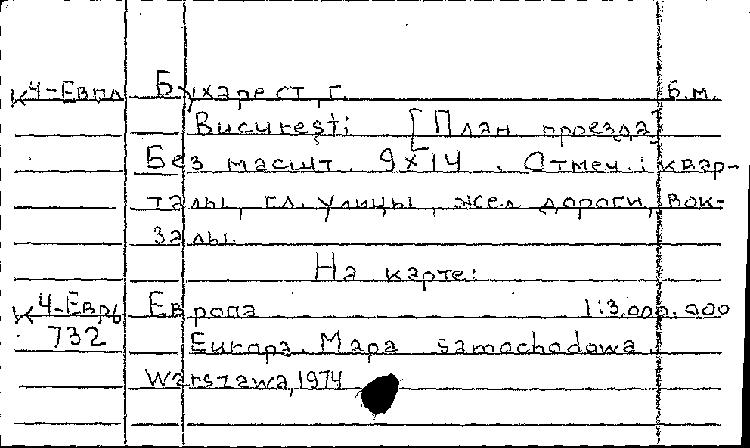 К4-Евпл Бухарест, г. Б.м.
București [План проезда]
Без масшт. 9х14. Отмеч.: квар-
талы, гл. улицы, жел дороги, вок-
залы.
На карте:
К4-Евр6 Европа 1:3.000.000
732 Europa. Mapa samochodowa.
Warszawa, 1974